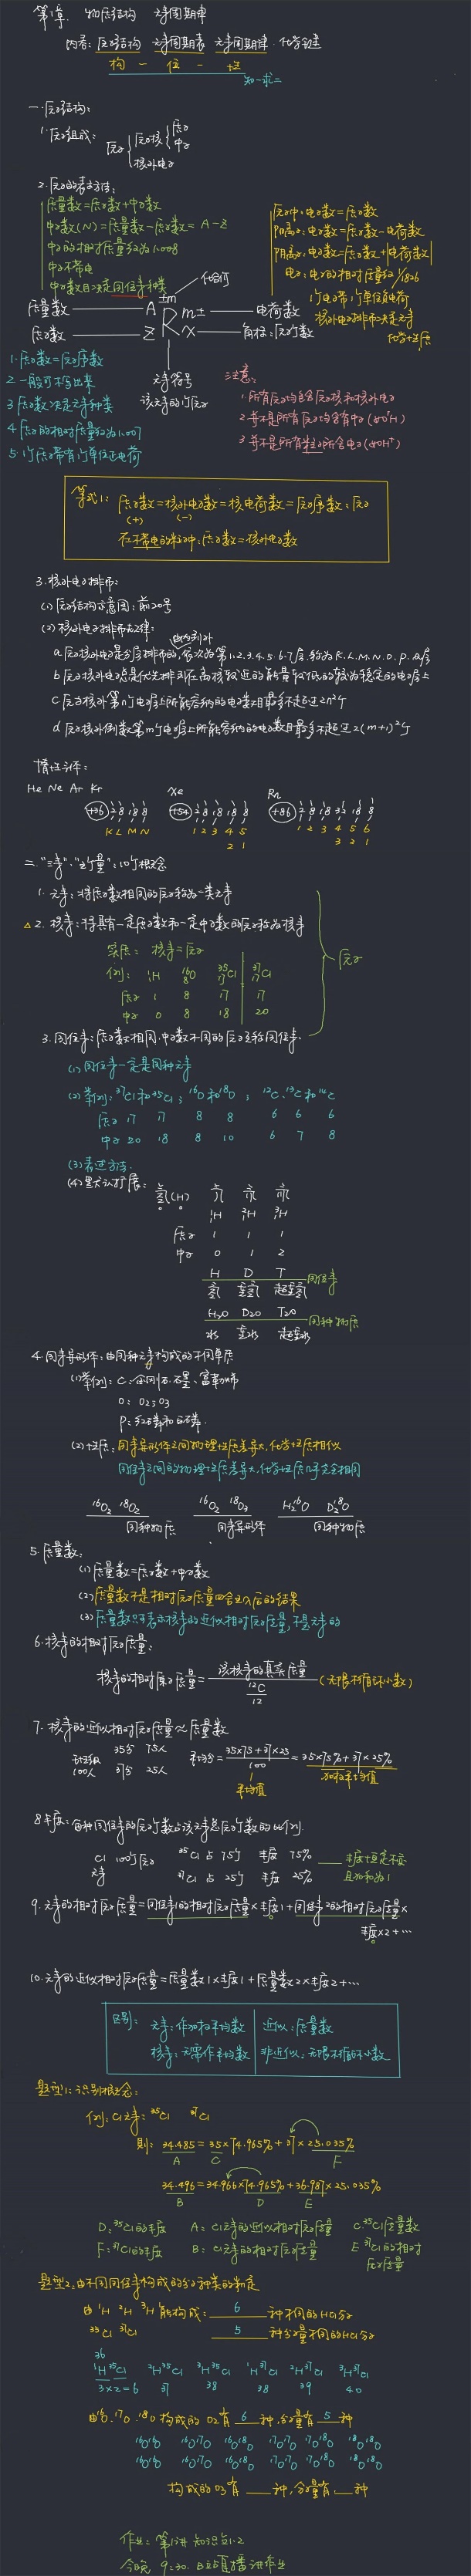 第1章. 物质结构 元素周期律
内容: 原子结构 元素周期表 元素周期律. 化学键
构 — 位 — 性
知一求二
一.原子结构:
1.原子组成: 原子 原子核 质子
中子
核外电子
2.原子的表示方法:
质量数=质子数+中子数
中子数(N)=质量数-质子数= A-Z
中子的相对质量约为1.008
中子不带电
中子数目决定同位素种类
原子中:电子数=质子数
阳离子:电子数=质子数-电荷数
阴离子:电子数=质子数+|电荷数|
电子:电子的相对质量约1/1836
1个电子带1个单位负电荷
核外电子排布决定元素
化学性质
化合价
质量数 A ±m m± 电荷数
R
质子数 Z x 角标:原子个数
元素符号
该元素的1个原子
1.质子数=原子序数
2.一般可不写出来
3.质子数决定元素种类
4.质子的相对质量约为1.007
5.1个质子带有1个单位正电荷
注意:
1.所有原子均含原子核和核外电子
2.并不是所有原子均含有中子(如¹H)
3.并不是所有粒子所含电子(如H⁺)
等式1: 质子数=核外电子数=核电荷数=原子序数:原子
(+) (-)
在不带电的粒子中:质子数=核外电子数
3.核外电子排布:
(1)原子结构示意图:前20号
(2)核外电子排布规律:
由内到外
a.原子核外电子是分层排布的,依次为第1.2.3.4.5.6.7层,称为K.L.M.N.O.P.Q层
b.原子核外电子总是优先排列在离核较近的能量较低的较为稳定的电子层上
c.原子核外第n个电子层上所能容纳的电子数目最多不超过2n²个
d.原子核外倒数第m个电子层上所能容纳的电子数目最多不超过2(m+1)²个
惰性气体:
He Ne Ar Kr Xe Rn
+36 2 8 18 8 +54 2 8 18 18 8 +86 2 8 18 32 18 8
K L M N 1 2 3 4 5 1 2 3 4 5 6
2 1 3 2 1
二."三素","五个量":10个概念
1.元素:将质子数相同的原子称为一类元素
△2.核素:将具有一定质子数和一定中子数的原子称为核素
实质: 核素=原子
例: ¹₁H ¹⁶₈O ³⁵₁₇Cl ³⁷₁₇Cl
质子 1 8 17 17
中子 0 8 18 20
原子
3.同位素:质子数相同.中子数不同的原子互称同位素.
(1)同位素一定是同种元素
(2)举例:³⁷Cl和³⁵Cl; ¹⁶O和¹⁸O ; ¹²C.¹³C和¹⁴C
质子 17 17 8 8 6 6 6
中子 20 18 8 10 6 7 8
(3)表述方法.
(4)默认扩展: 氢(H) 氕 氘 氚
¹₁H ²₁H ³₁H
质子 1 1 1
中子 0 1 2
H D T 同位素
氢 重氢 超重氢
H₂O D₂O T₂O 同种物质
水 重水 超重水
4.同素异形体:由同种元素构成的不同单质
(1)举例: C:金刚石.石墨、富勒烯
O: O2 O3
P:红磷和白磷.
(2)性质:同素异形体之间物理性质差异大,化学性质相似
同位素之间的物理性质差异大,化学性质几乎完全相同
¹⁶O₂ ¹⁸O₂ ¹⁶O₂ ¹⁸O₃ H₂¹⁶O D₂¹⁸O
同种物质 同素异形体 同种物质
5.质量数:
(1)质量数=质子数+中子数
(2)质量数不是相对原子质量四舍五入后的结果
(3)质量数只表示核素的近似相对原子质量,不是元素的
6.核素的相对原子质量:
核素的相对原子质量= 该核素的真实质量 (无限不循环小数)
¹²C
12
7.核素的近似相对原子质量≈质量数
班级 35分 75人
100人 37分 25人
平均分= 35×75+37×25 = 35×75%+37×25%
100
平均值 加权平均值
8.丰度:每种同位素的原子个数占该元素总原子个数的比例.
Cl 100个原子 ³⁵Cl 占 75个 丰度 75% 丰度恒定不变
元素 ³⁷Cl 占 25个 丰度 25% 且加和为1
9.元素的相对原子质量=同位素1的相对原子质量×丰度1+同位素2的相对原子质量×
丰度×2+…
10.元素的近似相对原子质量=质量数1×丰度1+质量数2×丰度2+…
区别: 元素:作加权平均数 近似:质量数
核素:无需作平均数 非近似:无限不循环小数
题型1:识别概念:
例:Cl元素:³⁵Cl ³⁷Cl
则: 34.485=35×74.965%+37×25.035%
A C F
34.496=34.966×74.965%+36.987×25.035%
B D E
D:³⁵Cl的丰度 A:Cl元素的近似相对原子质量 C:³⁵Cl质量数
F:³⁷Cl的丰度 B:Cl元素的相对原子质量 E:³⁷Cl的相对
原子质量
题型2:由不同同位素构成的分子种类的判定
由¹H ²H ³H能构成: 6 种不同的HCl分子
³⁵Cl ³⁷Cl 5 种分子量不同的HCl分子
36
¹H³⁵Cl ²H³⁵Cl ³H³⁵Cl ¹H³⁷Cl ²H³⁷Cl ³H³⁷Cl
3×2=6 37 38 38 39 40
由¹⁶O.¹⁷O.¹⁸O构成的O2有 6 种,分子量有 5 种
¹⁶O¹⁶O ¹⁶O¹⁷O ¹⁶O¹⁸O ¹⁷O¹⁷O ¹⁷O¹⁸O ¹⁸O¹⁸O
¹⁶O¹⁶O ¹⁶O¹⁷O ¹⁶O¹⁸O ¹⁷O¹⁷O ¹⁷O¹⁸O ¹⁸O¹⁸O
构成的O3有 种,分子量有 种
作业:第1讲 知识点1.2
今晚 9:30. B站直播讲作业